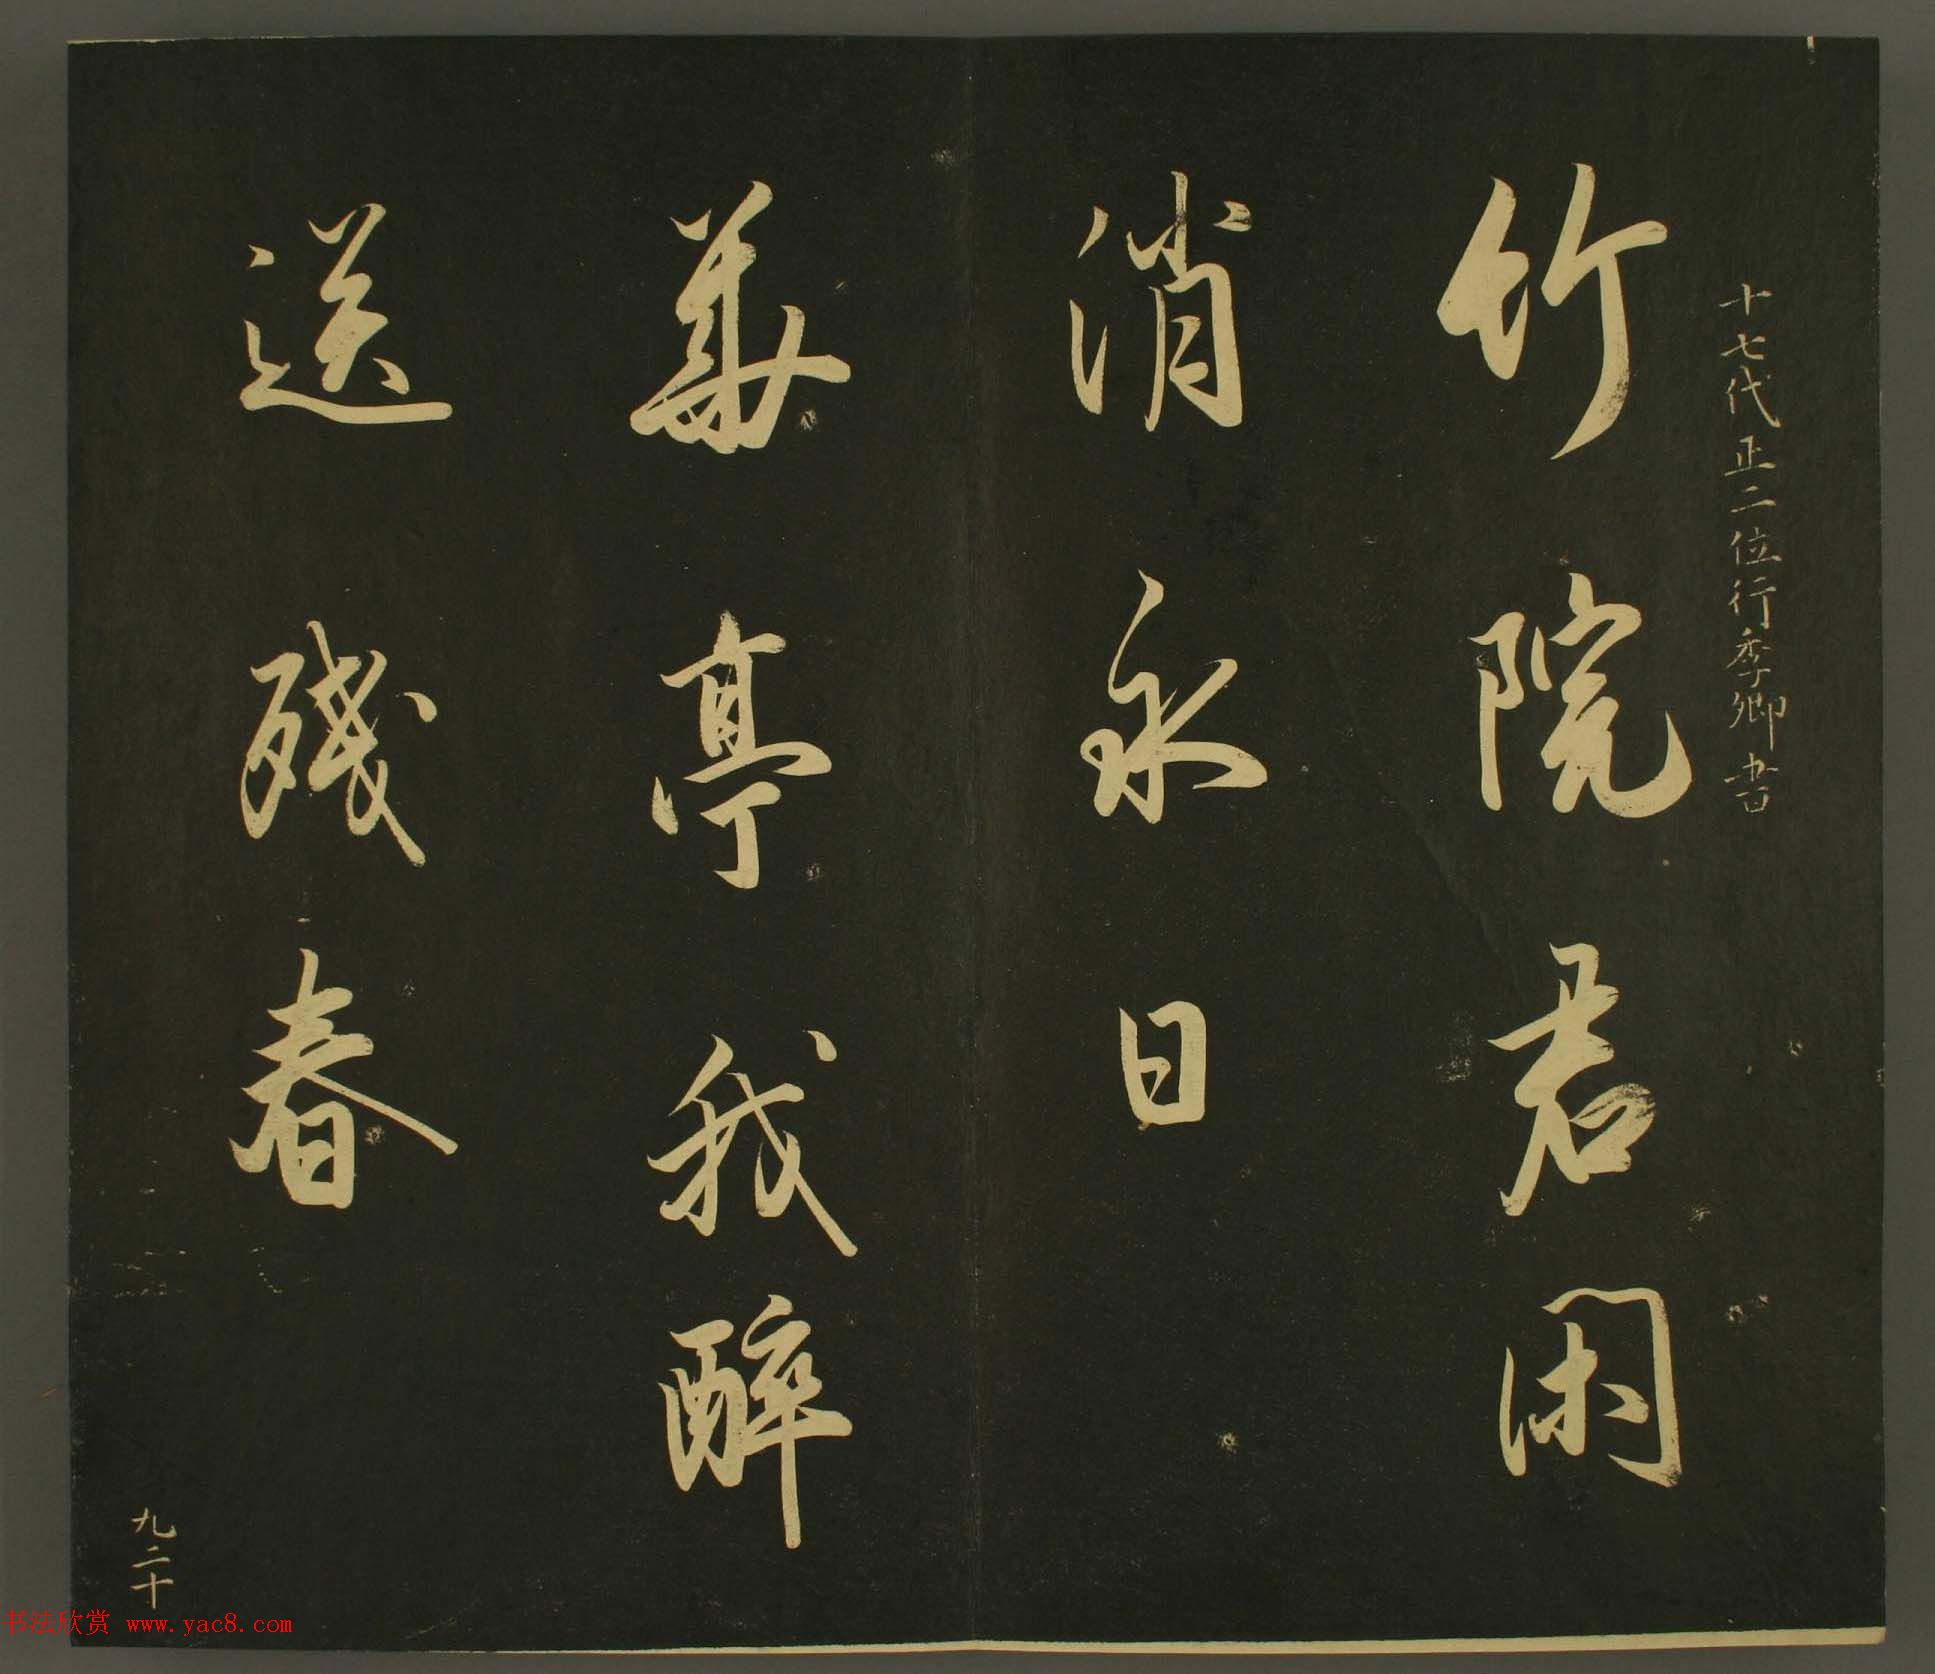 十七代正二位行季卿書
竹院君閑
消永日
華亭我醉
送殘春
九二十
书法欣赏 www.yac8.com